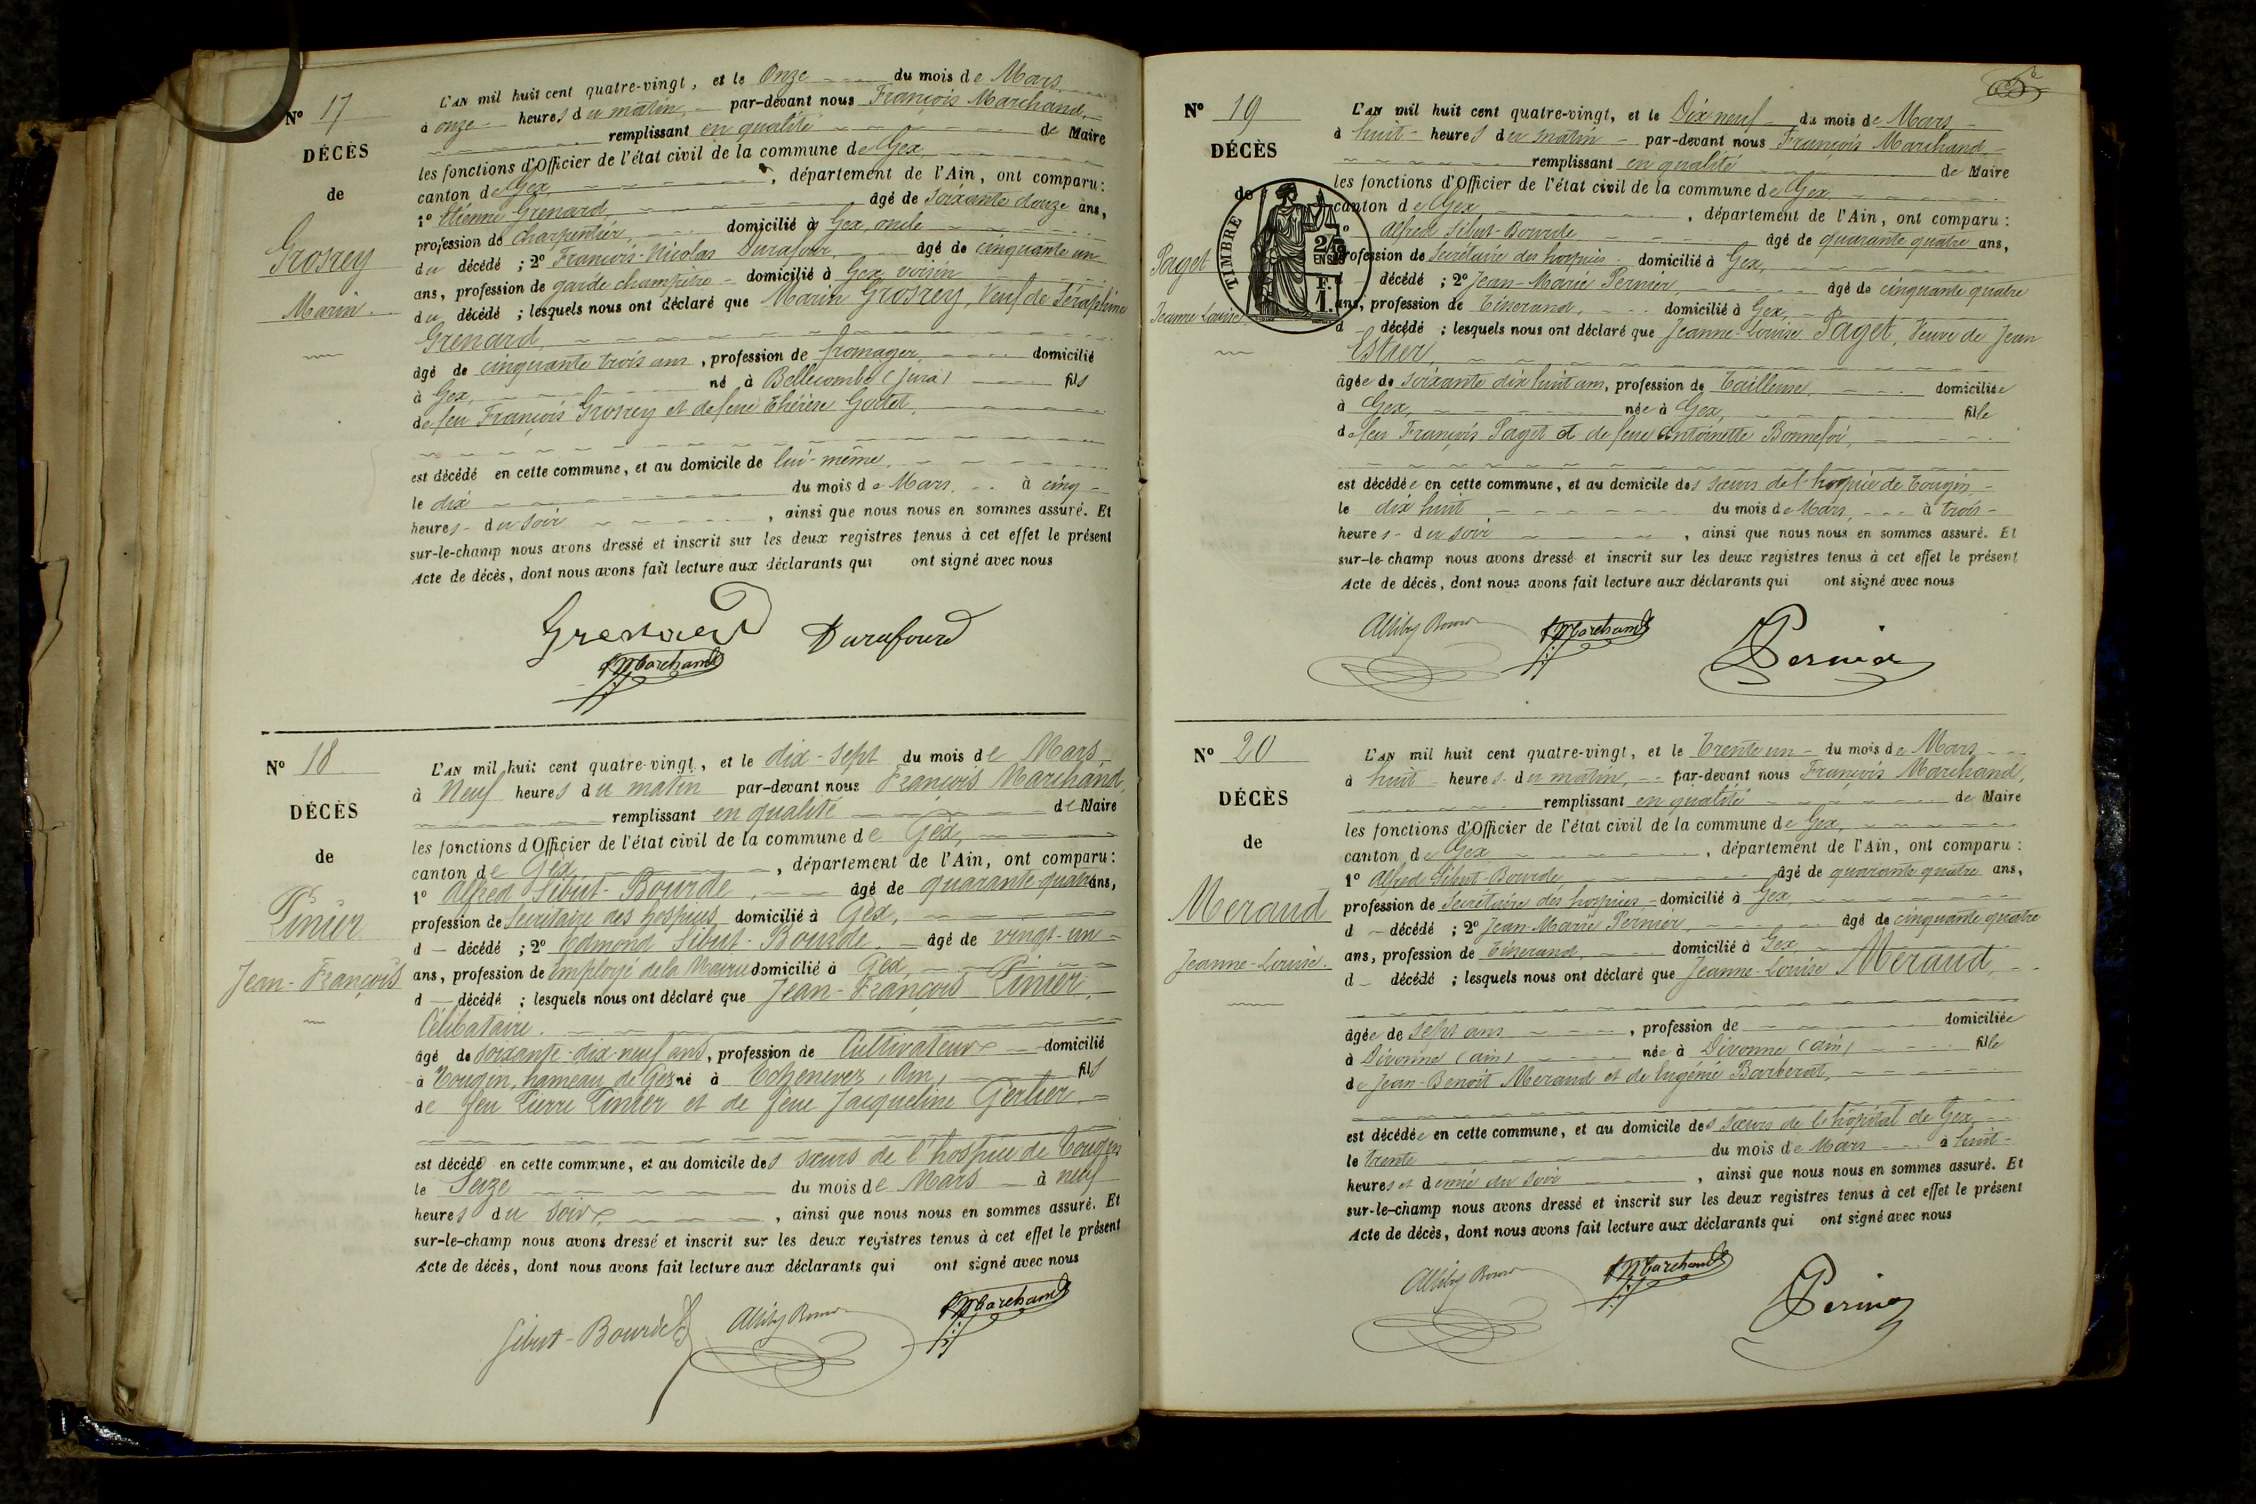 L'AN mil huit cent quatre-vingt, et le Onze du mois de Mars
N° 17
à onze heures du matin, par-devant nous François Marchand,
remplissant en qualité de Maire
DÉCÈS
les fonctions d'Officier de l'état civil de la commune de Gex,
canton de Gex, département de l'Ain, ont comparu :
de
1° Etienne Grenard, âgé de soixante douze ans,
profession de charpentier, domicilié à Gex, oncle
Grosrey
du décédé ; 2° François-Nicolas Durafour, âgé de cinquante un
ans, profession de garde champêtre domicilié à Gex, voisin
Marin.
du décédé ; lesquels nous ont déclaré que Marin Grosrey, Veuf de Séraphine
Grenard,
âgé de cinquante trois ans, profession de fromager, domicilié
à Gex, né à Bellecombe (Jura) fils
de feu François Grosrey et de feue Thérèse Godet,
est décédé en cette commune, et au domicile de lui-même,
le dix du mois de Mars, à cinq
heures du soir, ainsi que nous nous en sommes assuré. Et
sur-le-champ nous avons dressé et inscrit sur les deux registres tenus à cet effet le présent
Acte de décès, dont nous avons fait lecture aux déclarants qui ont signé avec nous
Grenard Durafourd
f. Marchand
N° 18
L'AN mil huit cent quatre-vingt, et le dix-sept du mois de Mars,
à Neuf heures du matin par-devant nous François Marchand,
DÉCÈS
remplissant en qualité de Maire
les fonctions d'Officier de l'état civil de la commune de Gex,
de
canton de Gex, département de l'Ain, ont comparu :
1° Alfred Sibut-Bourde, âgé de quarante-quatre ans,
Pinier
profession de Secrétaire des hospices domicilié à Gex,
d décédé ; 2° Edmond Sibut-Bourde, âgé de vingt-un
Jean-François
ans, profession de Employé de la Mairie domicilié à Gex,
d décédé ; lesquels nous ont déclaré que Jean-François Pinier,
Célibataire.
âgé de soixante-dix-neuf ans, profession de Cultivateur domicilié
à Tougin, hameau de Gex né à Echenevex, Ain, fils
de feu Pierre Pinier et de feue Jacqueline Gerlier.
est décédé en cette commune, et au domicile des sœurs de l'hospice de Tougin
le Seize du mois de Mars à neuf
heures du soir, ainsi que nous nous en sommes assuré. Et
sur-le-champ nous avons dressé et inscrit sur les deux registres tenus à cet effet le présent
Acte de décès, dont nous avons fait lecture aux déclarants qui ont signé avec nous
Sibut-Bourde
f. Marchand
N° 19
L'AN mil huit cent quatre-vingt, et le Dix neuf du mois de Mars
à huit heures du matin par-devant nous François Marchand,
DÉCÈS
remplissant en qualité de Maire
les fonctions d'Officier de l'état civil de la commune de Gex,
de
canton de Gex, département de l'Ain, ont comparu :
TIMBRE
2/10 EN SUS
F. 1.
1° Alfred Sibut-Bourde âgé de quarante quatre ans,
Paget
profession de Secrétaire des hospices domicilié à Gex,
d décédé ; 2° Jean-Marie Pernier, âgé de cinquante quatre
Jeanne Louise
ans, profession de Tisserand, domicilié à Gex,
d décédé ; lesquels nous ont déclaré que Jeanne-Louise Paget, Veuve de Jean
Estier,
âgée de soixante dix huit ans, profession de Tailleuse, domiciliée
à Gex, née à Gex, fille
de feu François Paget et de feue Antoinette Bonnefoi,
est décédée en cette commune, et au domicile des sœurs de l'hospice de Tougin,
le dix huit du mois de Mars, à trois
heures du soir, ainsi que nous nous en sommes assuré. Et
sur-le-champ nous avons dressé et inscrit sur les deux registres tenus à cet effet le présent
Acte de décès, dont nous avons fait lecture aux déclarants qui ont signé avec nous
f. Marchand Pernier
N° 20
L'AN mil huit cent quatre-vingt, et le Trente un du mois de Mars
à huit heures du matin, par-devant nous François Marchand,
DÉCÈS
remplissant en qualité de Maire
les fonctions d'Officier de l'état civil de la commune de Gex,
de
canton de Gex, département de l'Ain, ont comparu :
1° Alfred Sibut-Bourde âgé de quarante quatre ans,
Meraud
profession de Secrétaire des hospices domicilié à Gex,
d décédé ; 2° Jean-Marie Pernier, âgé de cinquante quatre
ans, profession de Tisserand, domicilié à Gex,
Jeanne-Louise.
d décédé ; lesquels nous ont déclaré que Jeanne-Louise Meraud,
âgée de sept ans, profession de domiciliée
à Divonne (Ain) née à Divonne (Ain) fille
de Jean-Benoît Meraud et de Eugénie Barberat,
est décédée en cette commune, et au domicile des sœurs de l'hôpital de Gex,
le trente du mois de Mars à huit
heures et demie du soir, ainsi que nous nous en sommes assuré. Et
sur-le-champ nous avons dressé et inscrit sur les deux registres tenus à cet effet le présent
Acte de décès, dont nous avons fait lecture aux déclarants qui ont signé avec nous
f. Marchand Pernier